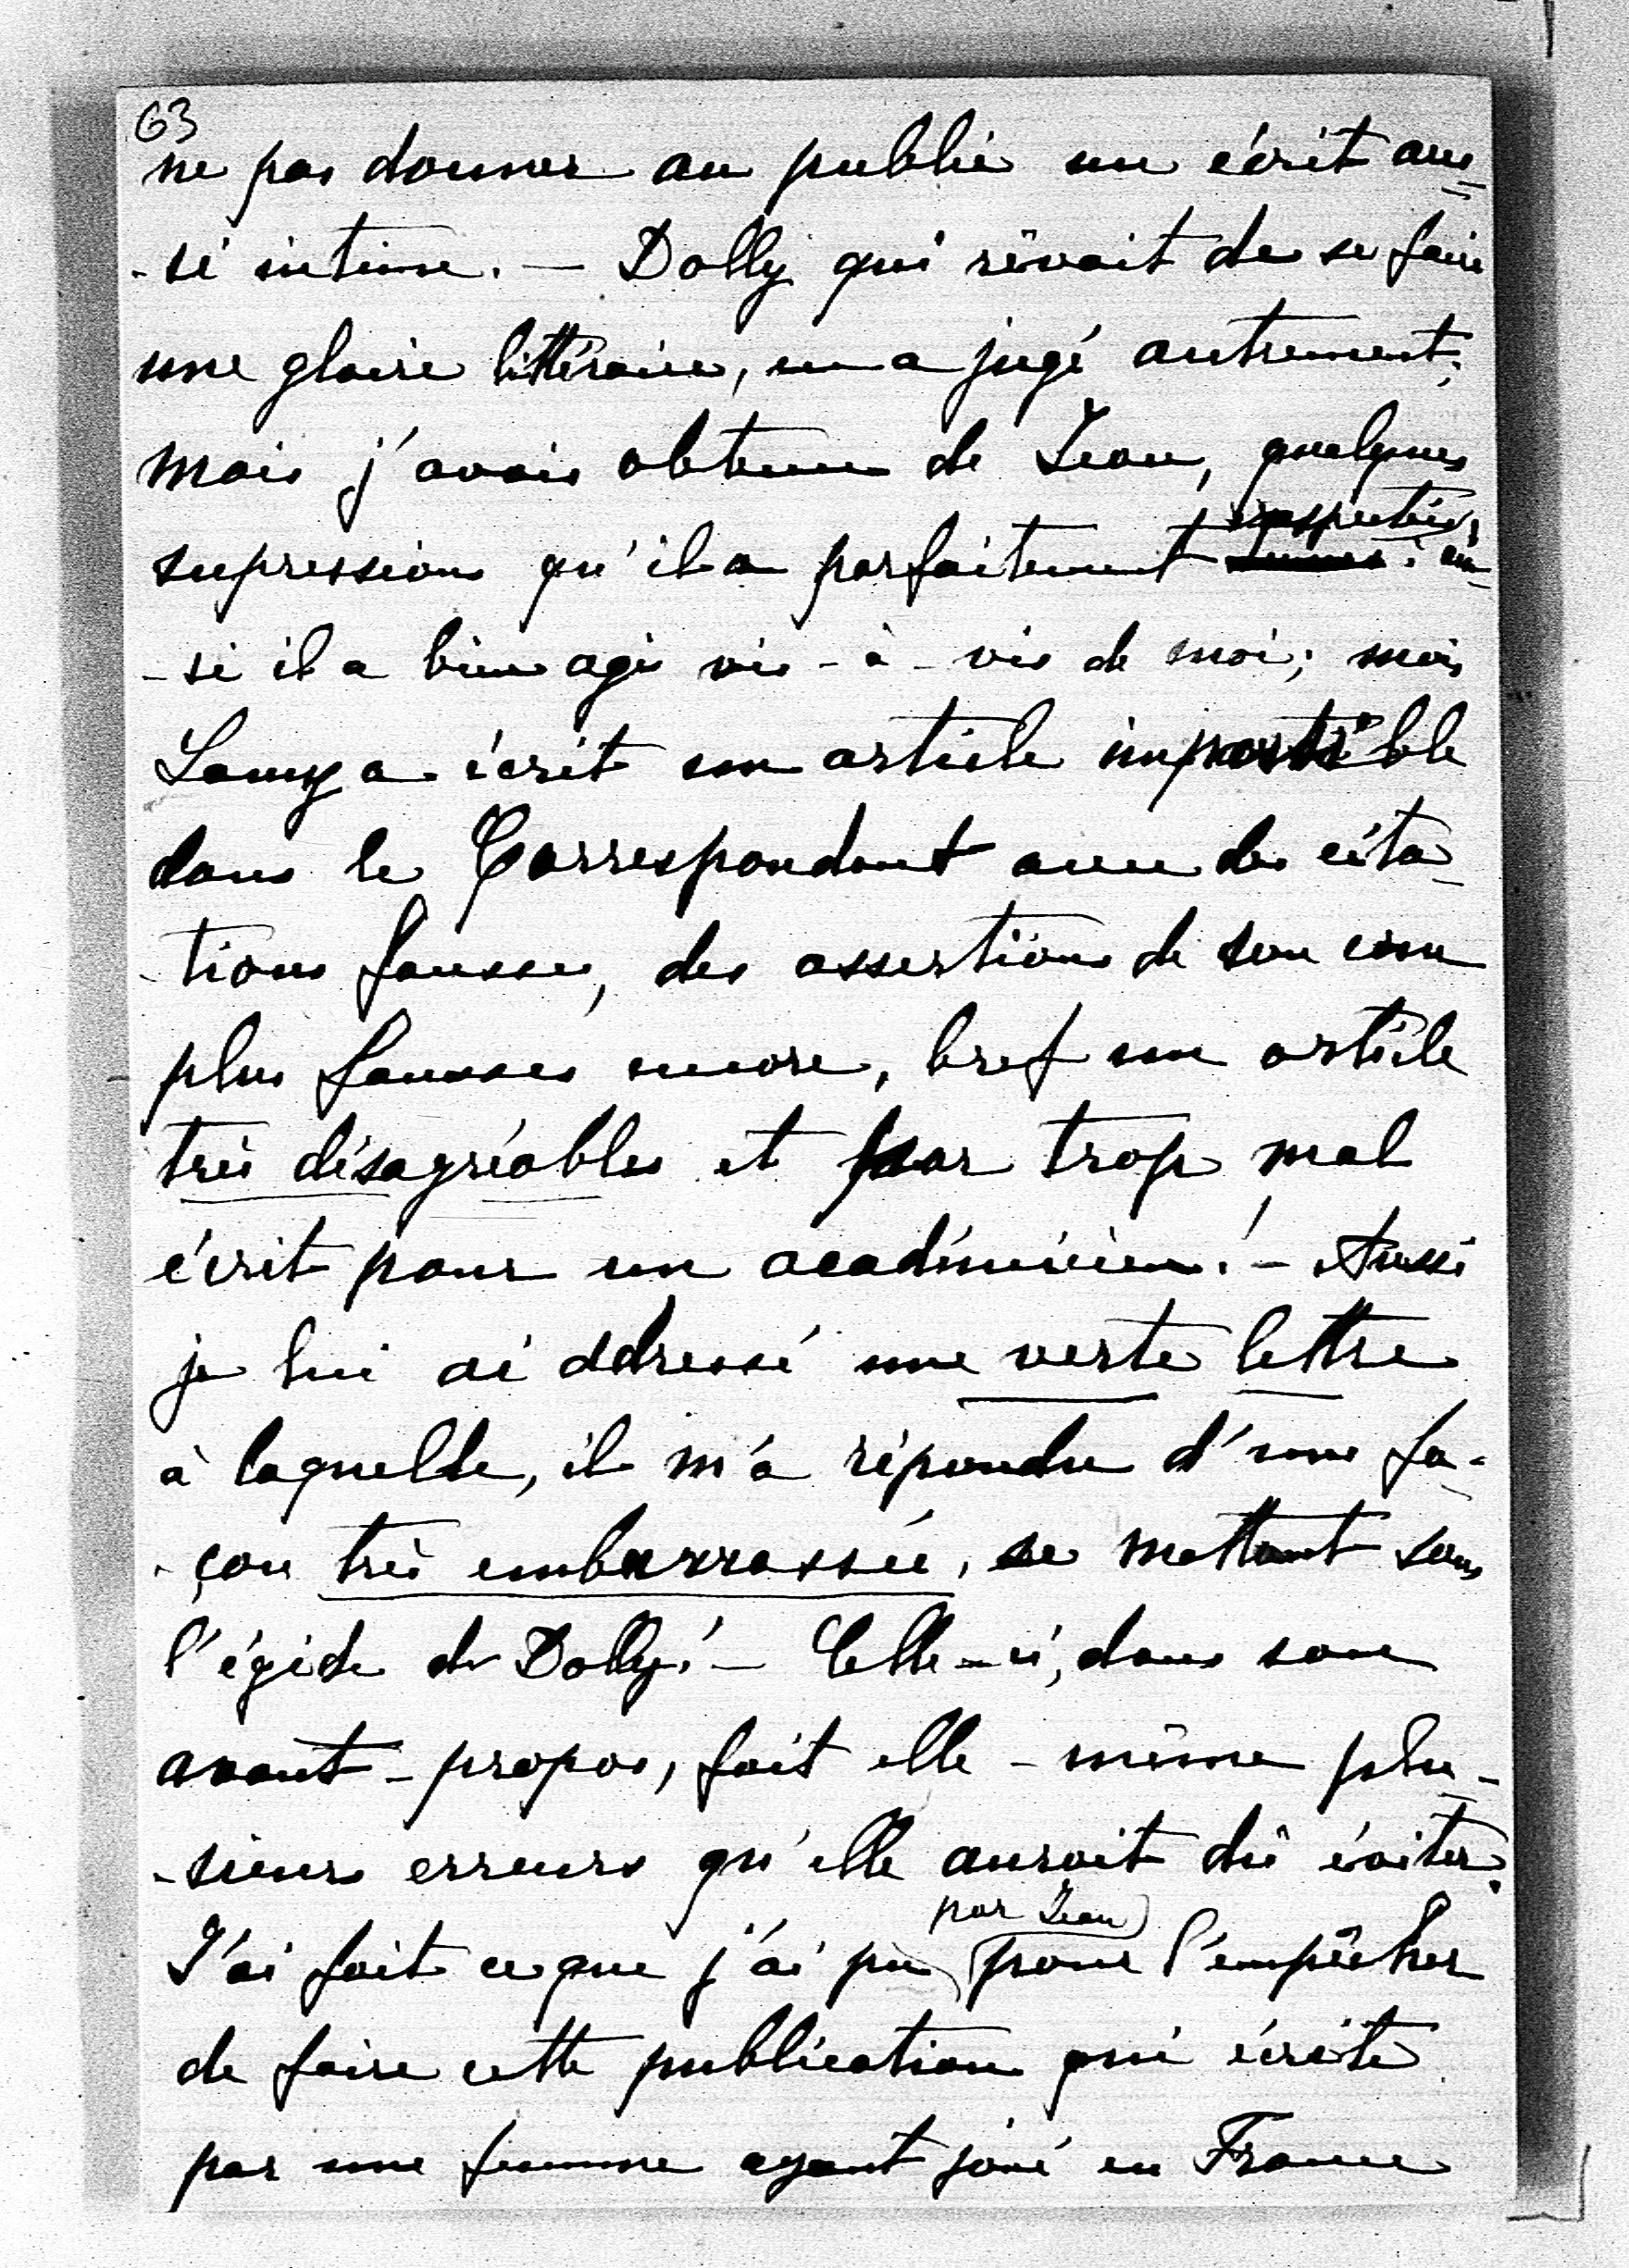 63
ne pas donner au public un écrit aus-
-si intime. — Dolly qui rêvait de se faire
une gloire littéraire, en a jugé autrement;
mais j'avais obtenu de Jean, quelques
respectées
supressions qu'il a parfaitement : ain-
-si il a bien agi vis-à-vis de moi; mais
Lamy a écrit un article
dans le Correspondant avec des cita-
-tions fausses, des assertions de son cru
plus fausses encore, bref un article
très désagréable et par trop mal
écrit pour un académicien! — Aussi
je lui ai addressé une verte lettre
à laquelle, il m'a répondu d'une fa-
-çon très embarrassée, se mettant sous
l'égide de Dolly! — Celle-ci, dans son
avant-propos, fait elle-même plu-
-sieurs erreurs qu'elle auroit dû éviter.
par Jean
J'ai fait ce que j'ai pu pour l'empêcher
de faire cette publication qui écrite
par une femme ayant joué en France